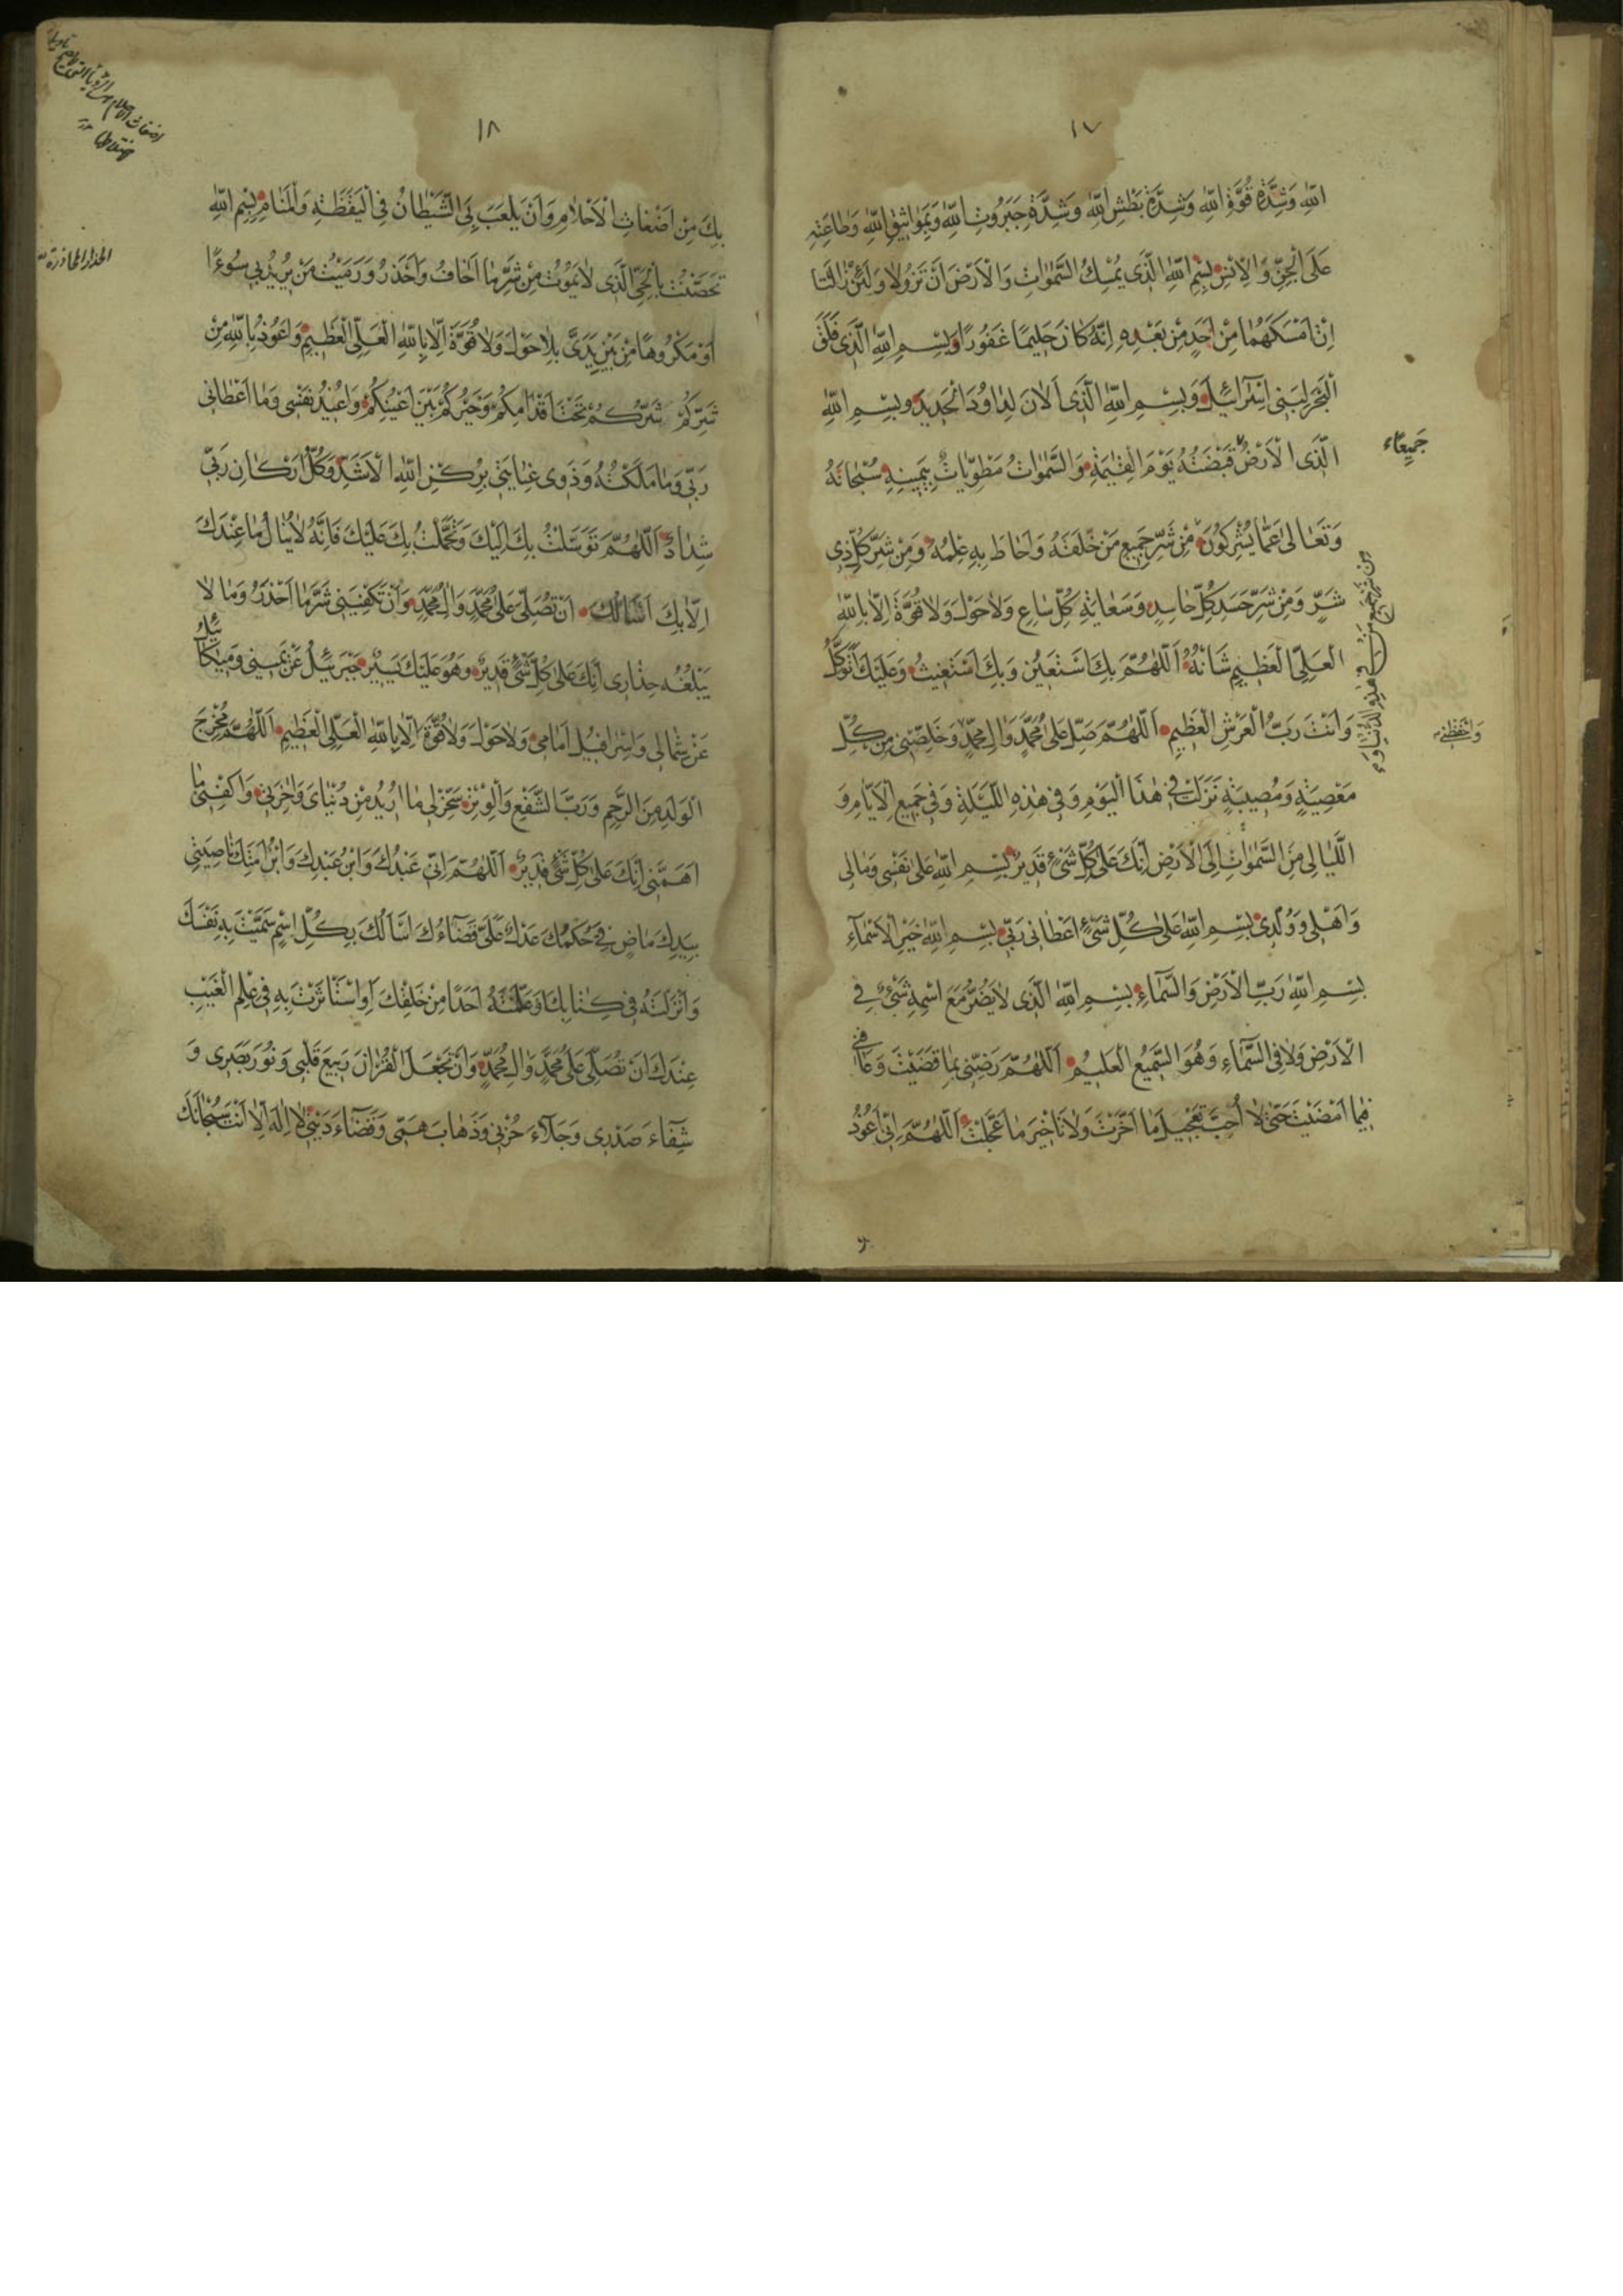 ١٧
اللّٰهِ وَشِدَّةِ قُوَّةِ اللّٰهِ وَشِدَّةِ بَطْشِ اللّٰهِ وَشِدَّةِ جَبَرُوتِ اللّٰهِ وَبِمَوَاثِيقِ اللّٰهِ وَطَاعَتِهِ
عَلَى الْجِنِّ وَالْاِنْسِ بِسْمِ اللّٰهِ الَّذِى يُمْسِكُ السَّمٰوَاتِ وَالْاَرْضَ اَنْ تَزُولَا وَلَئِنْ زَالَتَا
اِنْ اَمْسَكَهُمَا مِنْ اَحَدٍ مِنْ بَعْدِهِ اِنَّهُ كَانَ حَلِيمًا غَفُورًا وَبِسْمِ اللّٰهِ الَّذِى فَلَقَ
الْبَحْرَ لِبَنِى اِسْرَآئِيلَ وَبِسْمِ اللّٰهِ الَّذِى اَلَانَ لِدَاوُدَ الْحَدِيدَ وَبِسْمِ اللّٰهِ
الَّذِى الْاَرْضُ قَبْضَتُهُ يَوْمَ الْقِيٰمَةِ وَالسَّمٰوَاتُ مَطْوِيَّاتٌ بِيَمِينِهِ سُبْحَانَهُ
جَمِيعًا
وَتَعَالىٰ عَمَّا يُشْرِكُونَ مِنْ شَرِّ جَمِيعِ مَنْ خَلَقَهُ وَاَحَاطَ بِهِ عِلْمُهُ وَمِنْ شَرِّ كُلِّ ذِى
شَرٍّ وَمِنْ شَرِّ حَسَدِ كُلِّ حَاسِدٍ وَسَعَايَةِ كُلِّ سَاعٍ وَلَا حَوْلَ وَلَا قُوَّةَ اِلَّا بِاللّٰهِ
الْعَلِىِّ الْعَظِيمِ شَانُهُ اَللّٰهُمَّ بِكَ اَسْتَعِينُ وَبِكَ اَسْتَغِيثُ وَعَلَيْكَ اَتَوَكَّلُ
وَاَنْتَ رَبُّ الْعَرْشِ الْعَظِيمِ اَللّٰهُمَّ صَلِّ عَلىٰ مُحَمَّدٍ وَاٰلِ مُحَمَّدٍ وَخَلِّصْنِى مِنْ كُلِّ
وَاحْفَظْنِى
مَعْصِيَةٍ وَمُصِيبَةٍ نَزَلَتْ فِى هٰذَا الْيَوْمِ وَفِى هٰذِهِ اللَّيْلَةِ وَفِى جَمِيعِ الْاَيَّامِ وَ
اللَّيَالِى مِنَ السَّمٰوَاتِ اِلَى الْاَرْضِ اِنَّكَ عَلىٰ كُلِّ شَىْءٍ قَدِيرٌ بِسْمِ اللّٰهِ عَلىٰ نَفْسِى وَمَالِى
وَاَهْلِى وَوُلْدِى بِسْمِ اللّٰهِ عَلىٰ كُلِّ شَىْءٍ اَعْطَانِى رَبِّى بِسْمِ اللّٰهِ خَيْرِ الْاَسْمَآءِ
بِسْمِ اللّٰهِ رَبِّ الْاَرْضِ وَالسَّمَآءِ بِسْمِ اللّٰهِ الَّذِى لَا يَضُرُّ مَعَ اسْمِهِ شَىْءٌ فِى
الْاَرْضِ وَلَا فِى السَّمَآءِ وَهُوَ السَّمِيعُ الْعَلِيمُ اَللّٰهُمَّ رَضِّنِى بِمَا قَضَيْتَ وَعَافِنِى
فِيمَا اَمْضَيْتَ حَتّٰى لَا اُحِبَّ تَعْجِيلَ مَا اَخَّرْتَ وَلَا تَاْخِيرَ مَا عَجَّلْتَ اَللّٰهُمَّ اِنِّى اَعُوذُ
١٨
بِكَ مِنْ اَضْغَاثِ الْاَحْلَامِ وَاَنْ يَلْعَبَ بِىَ الشَّيْطَانُ فِى الْيَقَظَةِ وَالْمَنَامِ بِسْمِ اللّٰهِ
تَحَصَّنْتُ بِالْحَىِّ الَّذِى لَا يَمُوتُ مِنْ شَرِّ مَا اَخَافُ وَاَحْذَرُ وَرَمَيْتُ مَنْ يُرِيدُ بِى سُوءًا
اَوْ مَكْرُوهًا مِنْ بَيْنِ يَدَىَّ بِلَا حَوْلَ وَلَا قُوَّةَ اِلَّا بِاللّٰهِ الْعَلِىِّ الْعَظِيمِ وَاَعُوذُ بِاللّٰهِ مِنْ
شَرِّكُمْ شَرُّكُمْ تَحْتَ اَقْدَامِكُمْ وَخَيْرُكُمْ بَيْنَ اَعْيُنِكُمْ وَاُعِيذُ نَفْسِى وَمَا اَعْطَانِى
رَبِّى وَمَا مَلَكْتُهُ وَذَوِى عِنَايَتِى بِرُكْنِ اللّٰهِ الْاَشَدِّ وَكُلُّ اَرْكَانِ رَبِّى
شِدَادٌ اَللّٰهُمَّ تَوَسَّلْتُ بِكَ اِلَيْكَ وَتَحَمَّلْتُ بِكَ عَلَيْكَ فَاِنَّهُ لَا يُنَالُ مَا عِنْدَكَ
اِلَّا بِكَ اَسْاَلُكَ اَنْ تُصَلِّىَ عَلىٰ مُحَمَّدٍ وَاٰلِ مُحَمَّدٍ وَاَنْ تَكْفِيَنِى شَرَّ مَا اَحْذَرُ وَمَا لَا
يَبْلُغُهُ حِذَارِى اِنَّكَ عَلىٰ كُلِّ شَىْءٍ قَدِيرٌ وَهُوَ عَلَيْكَ يَسِيرٌ جَبْرَئِيلُ عَنْ يَمِينِى وَمِيكَائِيلُ
عَنْ شِمَالِى وَاِسْرَافِيلُ اَمَامِى وَلَا حَوْلَ وَلَا قُوَّةَ اِلَّا بِاللّٰهِ الْعَلِىِّ الْعَظِيمِ اَللّٰهُمَّ مُخْرِجَ
الْوَلَدِ مِنَ الرَّحِمِ وَرَبَّ الشَّفْعِ وَالْوَتْرِ سَخِّرْ لِى مَا اُرِيدُ مِنْ دُنْيَاىَ وَاٰخِرَتِى وَاكْفِنِى مَا
اَهَمَّنِى اِنَّكَ عَلىٰ كُلِّ شَىْءٍ قَدِيرٌ اَللّٰهُمَّ اِنِّى عَبْدُكَ وَابْنُ عَبْدِكَ وَابْنُ اَمَتِكَ نَاصِيَتِى
بِيَدِكَ مَاضٍ فِىَّ حُكْمُكَ عَدْلٌ عَلَىَّ قَضَآءُكَ اَسْاَلُكَ بِكُلِّ اسْمٍ سَمَّيْتَ بِهِ نَفْسَكَ
وَاَنْزَلْتَهُ فِى كِتَابِكَ اَوْ عَلَّمْتَهُ اَحَدًا مِنْ خَلْقِكَ اَوِ اسْتَاْثَرْتَ بِهِ فِى عِلْمِ الْغَيْبِ
عِنْدَكَ اَنْ تُصَلِّىَ عَلىٰ مُحَمَّدٍ وَاٰلِ مُحَمَّدٍ وَاَنْ تَجْعَلَ الْقُرْاٰنَ رَبِيعَ قَلْبِى وَنُورَ بَصَرِى وَ
شِفَآءَ صَدْرِى وَجَلَآءَ حُزْنِى وَذَهَابَ هَمِّى وَقَضَآءَ دَيْنِى لَا اِلٰهَ اِلَّا اَنْتَ سُبْحَانَكَ
الحذار المحاذرة